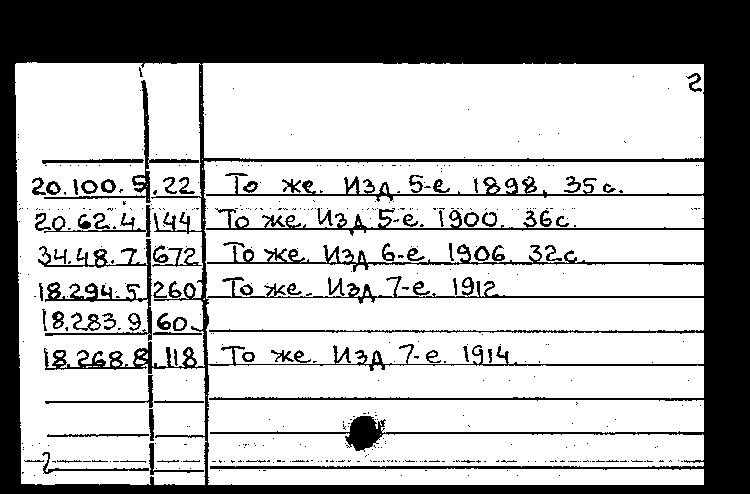 2
20.100.5.22 То же. Изд. 5-е. 1898. 35 с.
20.62.4.144 То же. Изд 5-е. 1900. 36с.
34.48.7.672 То же. Изд 6-е. 1906. 32с.
18.294.5.260 То же. Изд. 7-е. 1912.
18.283.9.60
18.268.8.118 То же. Изд 7-е. 1914.
2